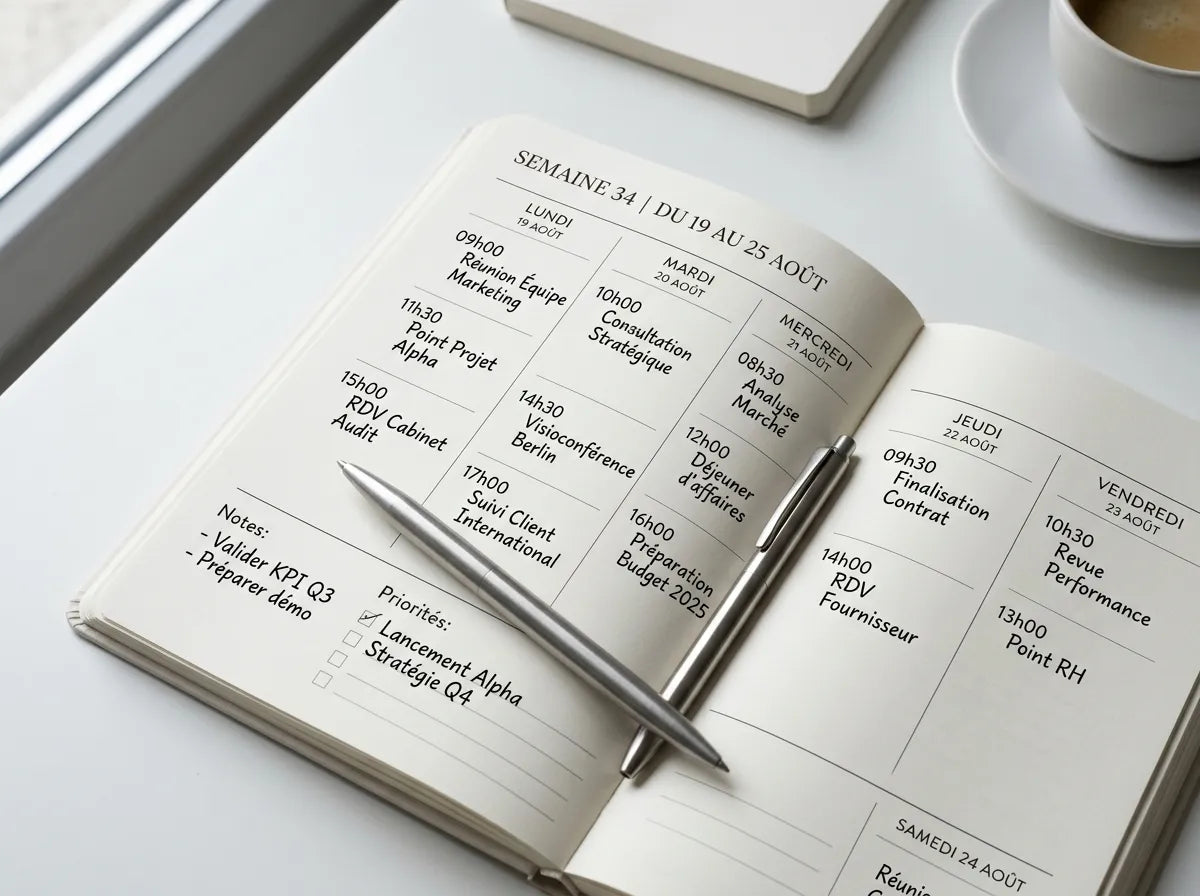 SEMAINE 34 | DU 19 AU 25 AOÛT
LUNDI
19 AOÛT
09h00
Réunion Équipe
Marketing
11h30
Point Projet
Alpha
15h00
RDV Cabinet
Audit
MARDI
20 AOÛT
10h00
Consultation
Stratégique
14h30
Visioconférence
Berlin
17h00
Suivi Client
International
MERCREDI
21 AOÛT
08h30
Analyse
Marché
12h00
Déjeuner
d'affaires
16h00
Préparation
Budget 2025
Notes:
- Valider KPI Q3
- Préparer démo
Priorités:
Lancement Alpha
Stratégie Q4
JEUDI
22 AOÛT
09h30
Finalisation
Contrat
14h00
RDV
Fournisseur
VENDREDI
23 AOÛT
10h30
Revue
Performance
13h00
Point RH
SAMEDI 24 AOÛT